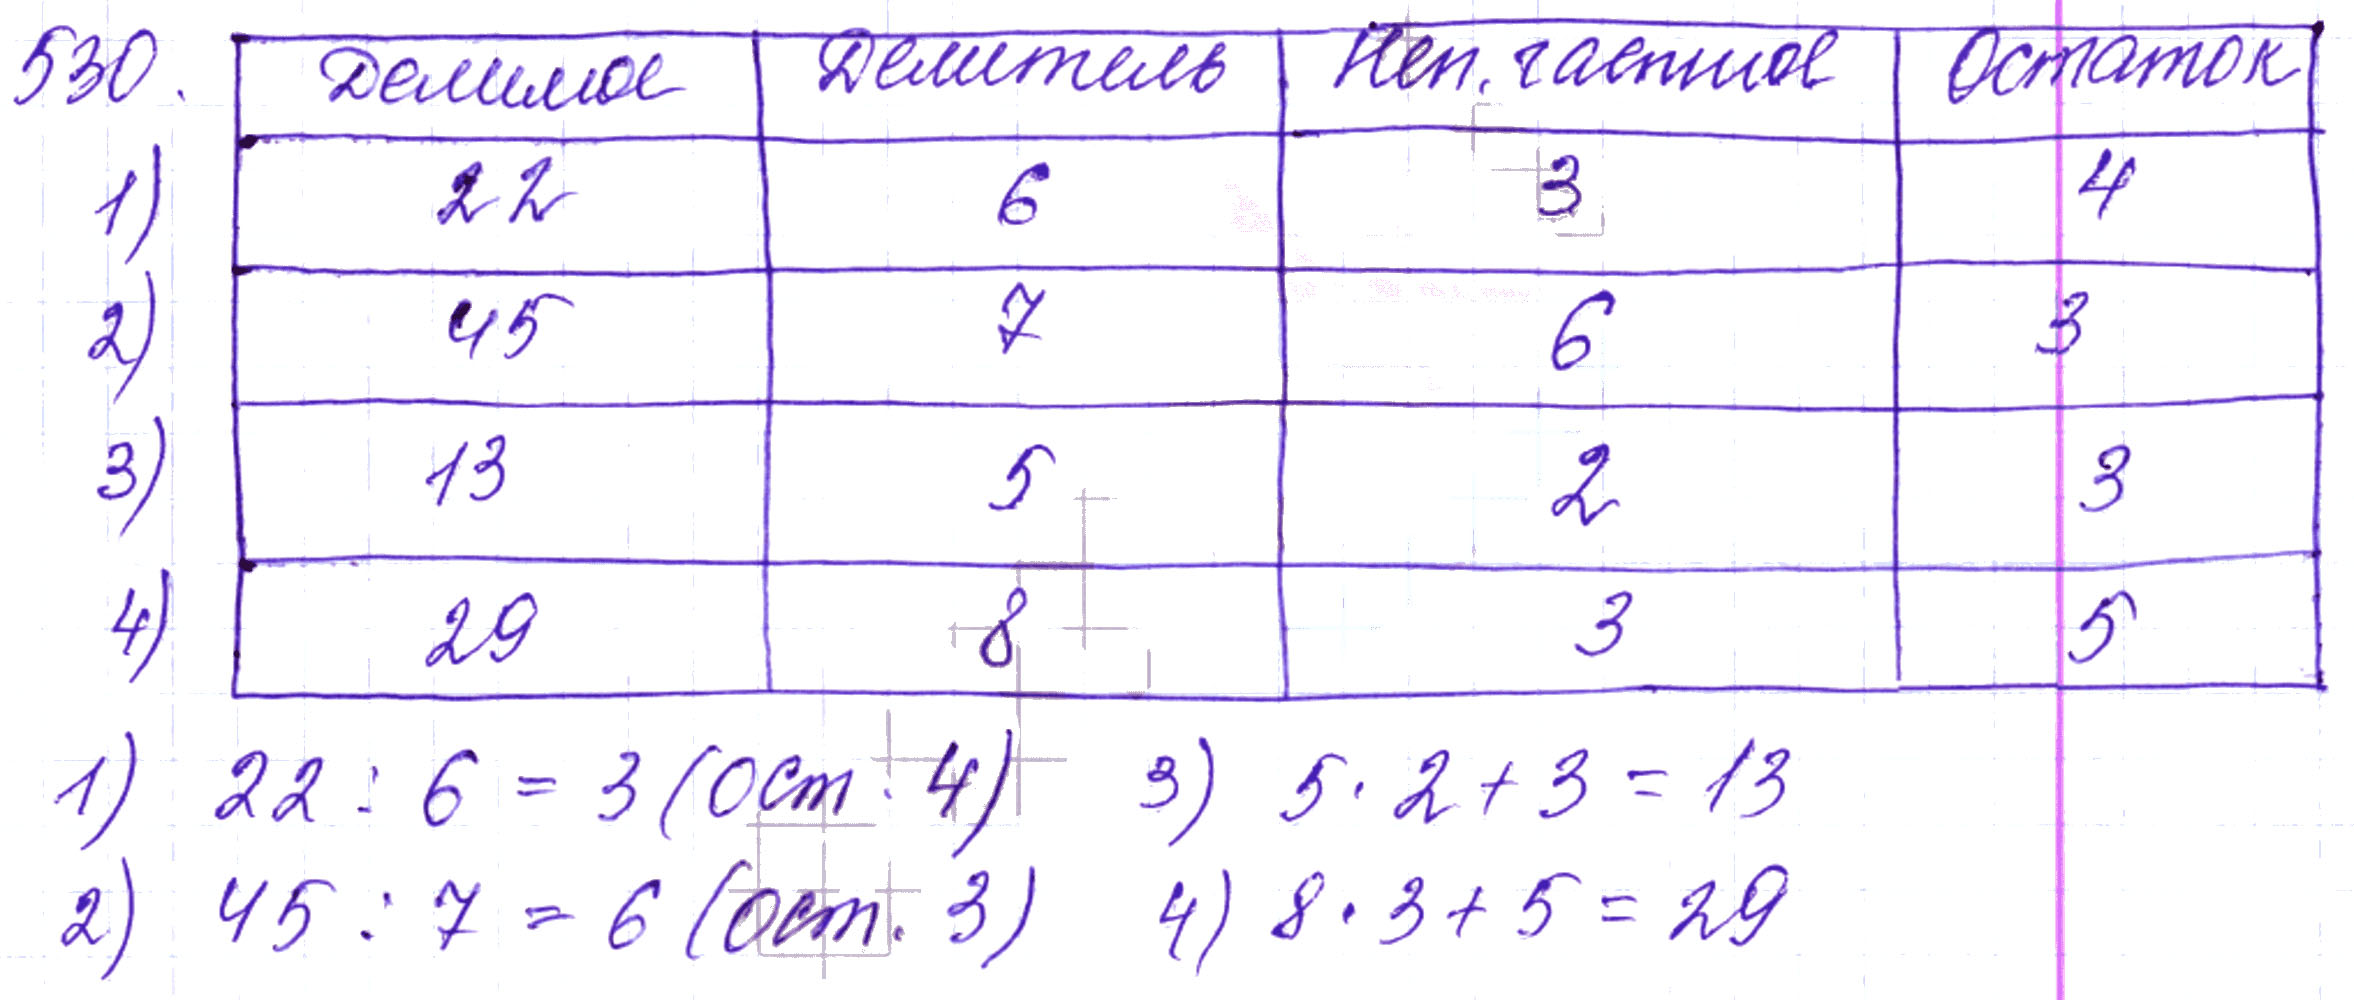 530. Делимое Делитель Неп. частное Остаток
1) 22 6 3 4
2) 45 7 6 3
3) 13 5 2 3
4) 29 8 3 5
1) 22 : 6 = 3 (ост. 4) 3) 5 · 2 + 3 = 13
2) 45 : 7 = 6 (ост. 3) 4) 8 · 3 + 5 = 29